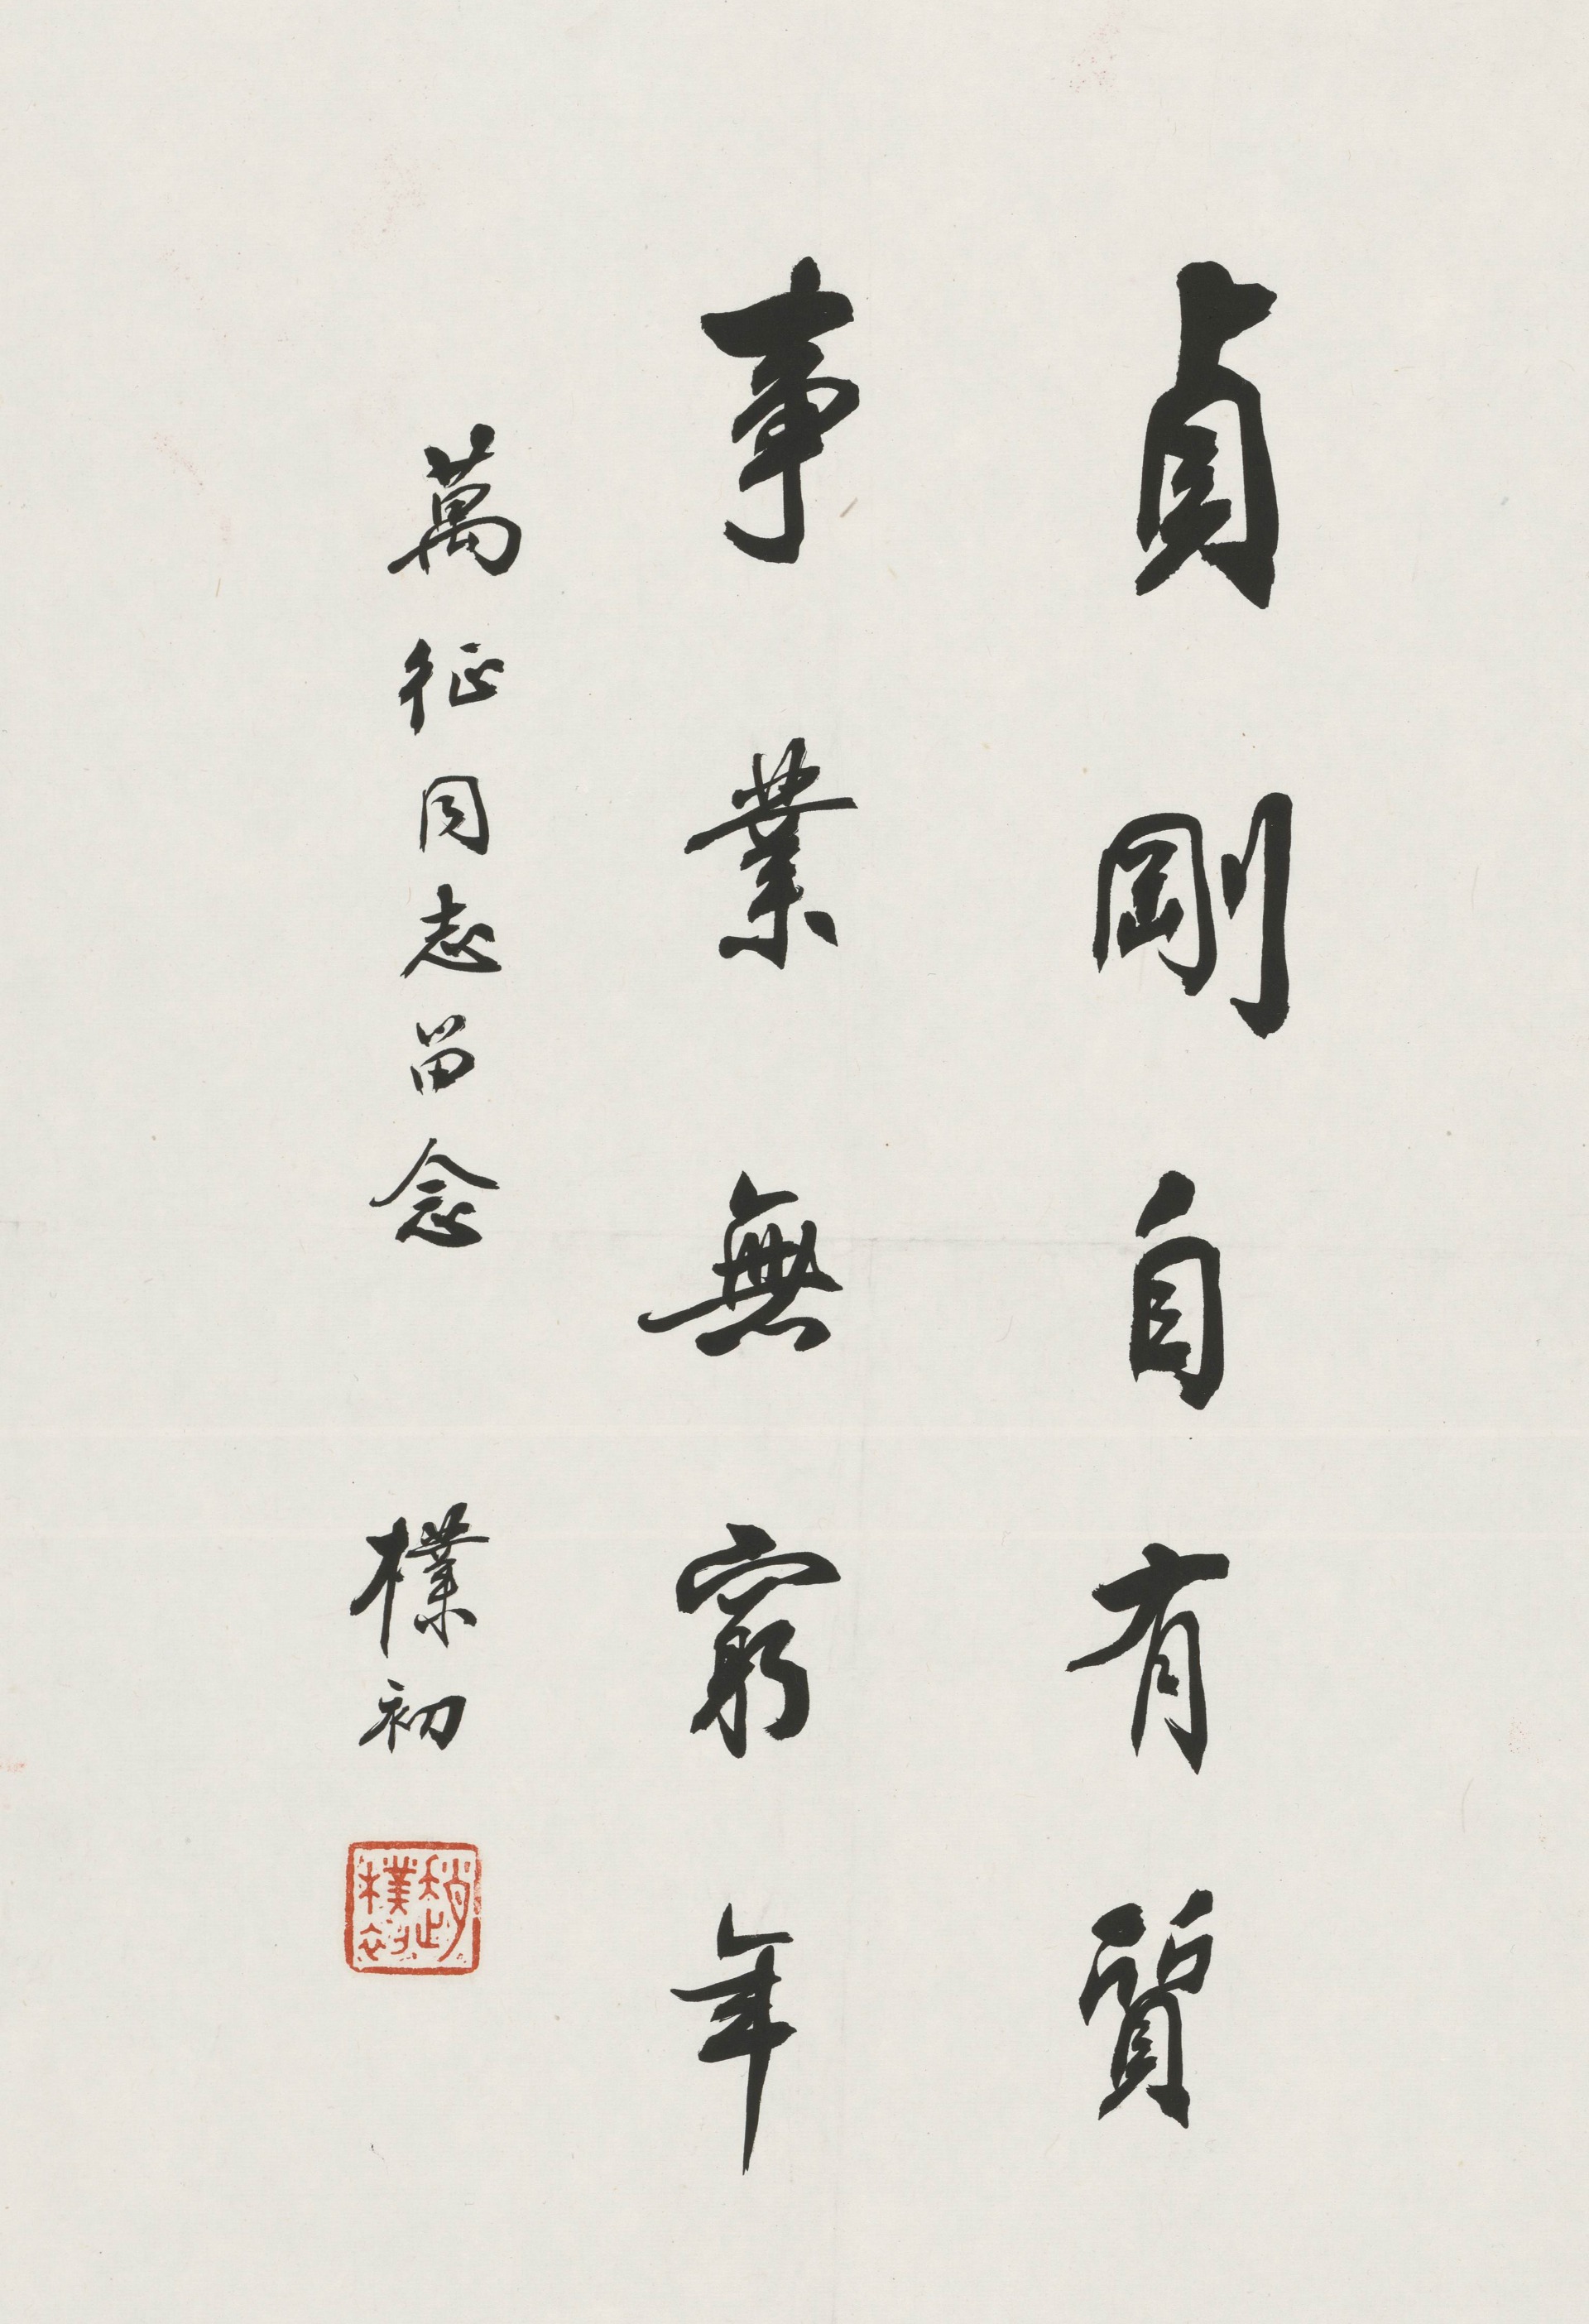 貞剛自有質
事業無窮年
萬征同志留念 樸初
趙樸初